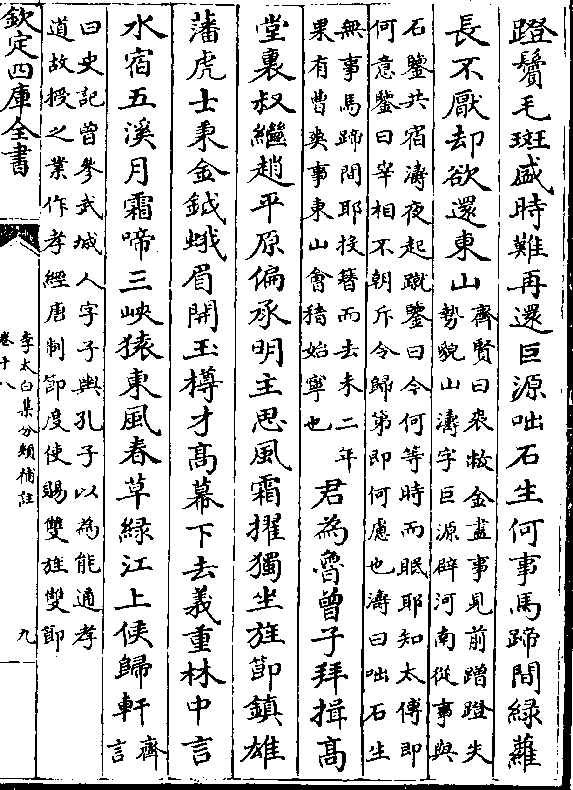 蹬鬢毛斑盛時難再還巨源咄石生何事馬蹄間綠蘿
長不厭却欲還東山齊賢曰裘敝金盡事見前蹭蹬失
勢貌山濤字巨源辟河南從事與
石鑒共宿濤夜起蹴鑒曰今何等時而眠耶知太傅即
何意鑒曰宰相不朝斥令歸第即何慮也濤曰咄石生
無事馬蹄間耶投替而去未二年
果有曹爽事東山會稽始寧也君為魯曾子拜揖高
堂裏叔繼趙平原偏承明主恩風霜擢獨坐旌節鎮雄
藩虎士秉金鉞蛾眉開玉樽才髙幕下去義重林中言
水宿五溪月霜啼三峽猿東風春草綠江上候歸軒齊
言
曰史記曾參武城人字子與孔子以為能通孝
道故授之業作孝經唐制節度使賜雙旌雙節
欽定四庫全書
李太白集分類補註
卷十八
九